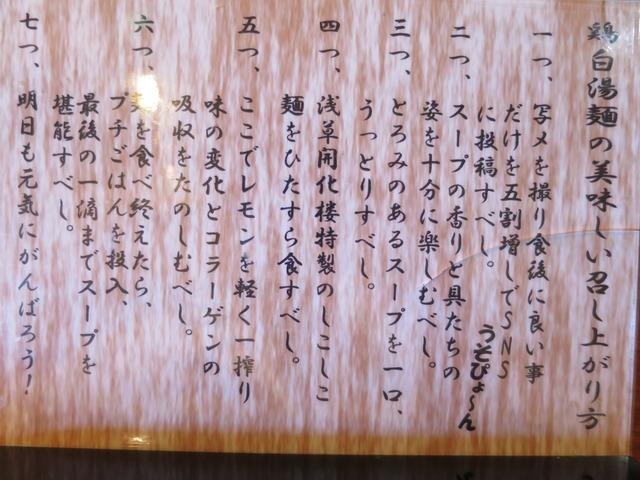 鶏白湯麺の美味しい召し上がり方
一つ、写メを撮り食後に良い事
だけを五割増しでSNS
に投稿すべし。
うそぴょ〜ん
二つ、スープの香りと具たちの
姿を十分に楽しむべし。
三つ、とろみのあるスープを一口、
うっとりすべし。
四つ、浅草開化楼特製のしこしこ
麺をひたすら食すべし。
五つ、ここでレモンを軽く一搾り
味の変化とコラーゲンの
吸収をたのしむべし。
六つ、麺を食べ終えたら、
プチごはんを投入、
最後の一滴までスープを
堪能すべし。
七つ、明日も元気にがんばろう！